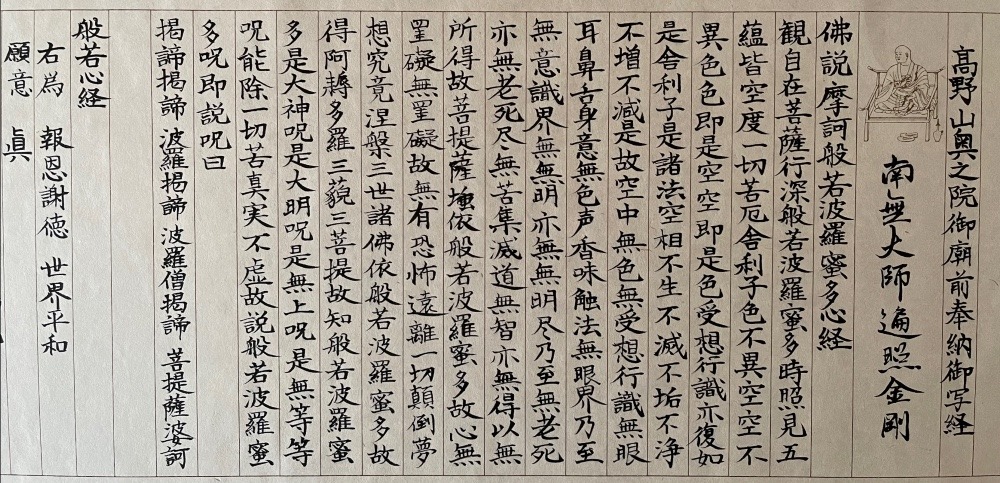 髙野山奥之院御廟前奉納御写経
南無大師遍照金剛
佛説摩訶般若波羅蜜多心経
観自在菩薩行深般若波羅蜜多時照見五
蘊皆空度一切苦厄舎利子色不異空空不
異色色即是空空即是色受想行識亦復如
是舎利子是諸法空相不生不滅不垢不浄
不増不減是故空中無色無受想行識無眼
耳鼻舌身意無色声香味触法無眼界乃至
無意識界無無明亦無無明尽乃至無老死
亦無老死尽無苦集滅道無智亦無得以無
所得故菩提薩埵依般若波羅蜜多故心無
罣礙無罣礙故無有恐怖遠離一切顛倒夢
想究竟涅槃三世諸佛依般若波羅蜜多故
得阿耨多羅三藐三菩提故知般若波羅蜜
多是大神呪是大明呪是無上呪是無等等
呪能除一切苦真実不虚故説般若波羅蜜
多呪即説呪曰
揭諦揭諦 波羅揭諦 波羅僧揭諦 菩提薩婆訶
般若心経
右為 報恩謝徳 世界平和
願意 眞